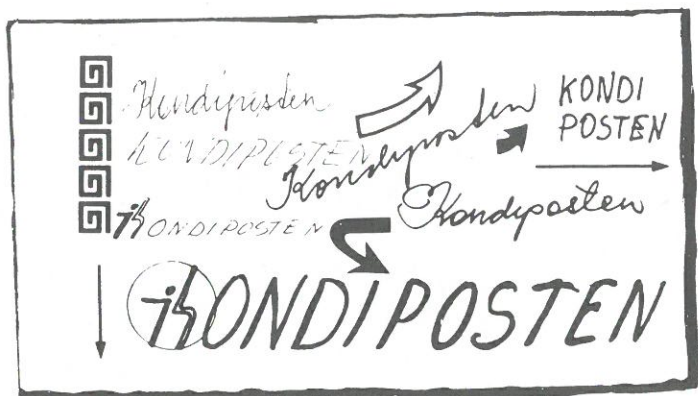 Kondiposten
KONDIPOSTEN
Kondiposten
KONDI
POSTEN
Kondiposten
KONDIPOSTEN
KONDIPOSTEN